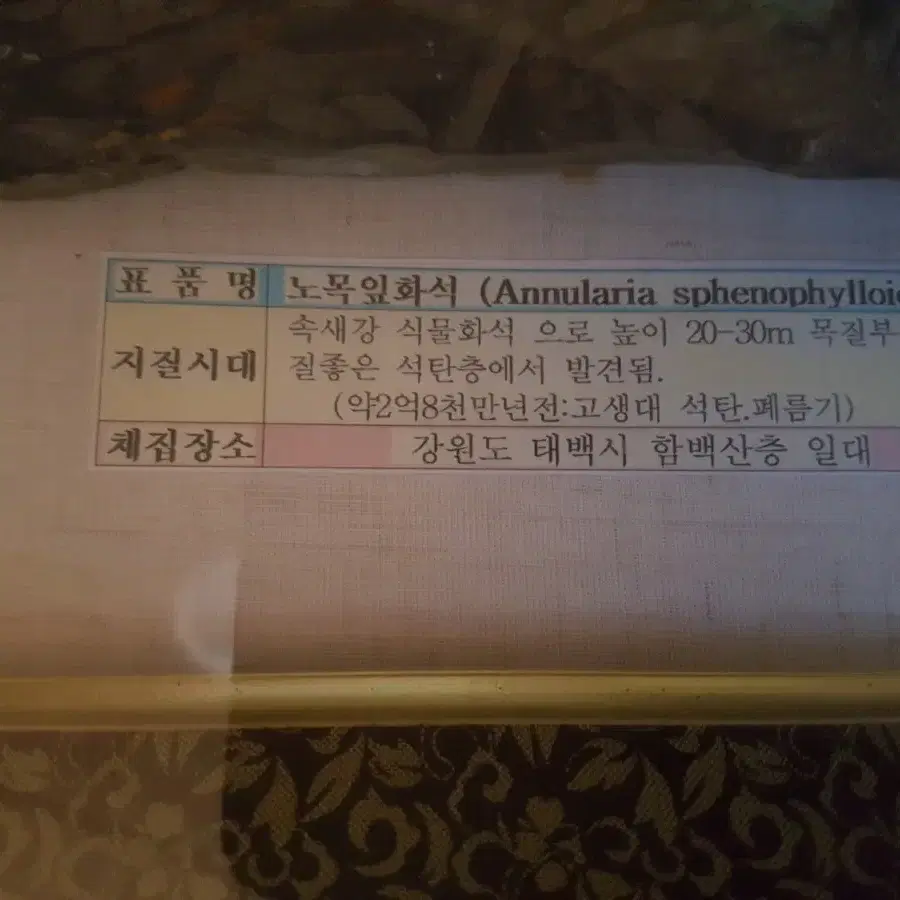 표 품 명 노목잎화석 (Annularia sphenophylloi
지질시대 속새강 식물화석 으로 높이 20-30m 목질부
질좋은 석탄층에서 발견됨.
(약2억8천만년전:고생대 석탄.폐름기)
채집장소 강원도 태백시 함백산층 일대